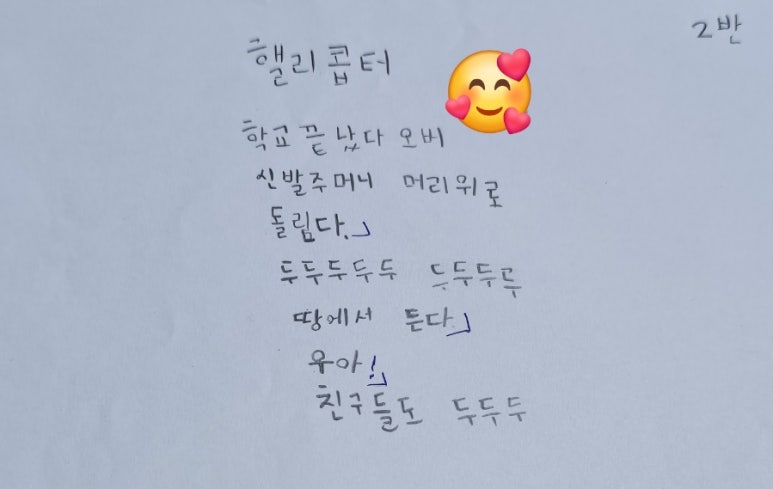 2반
핼리콥터
학교 끝 났다 오버
신발주머니 머리위로
돌림다.
두두두두두 두두두두
땅에서 튼다
우아!
친구들도 두두두